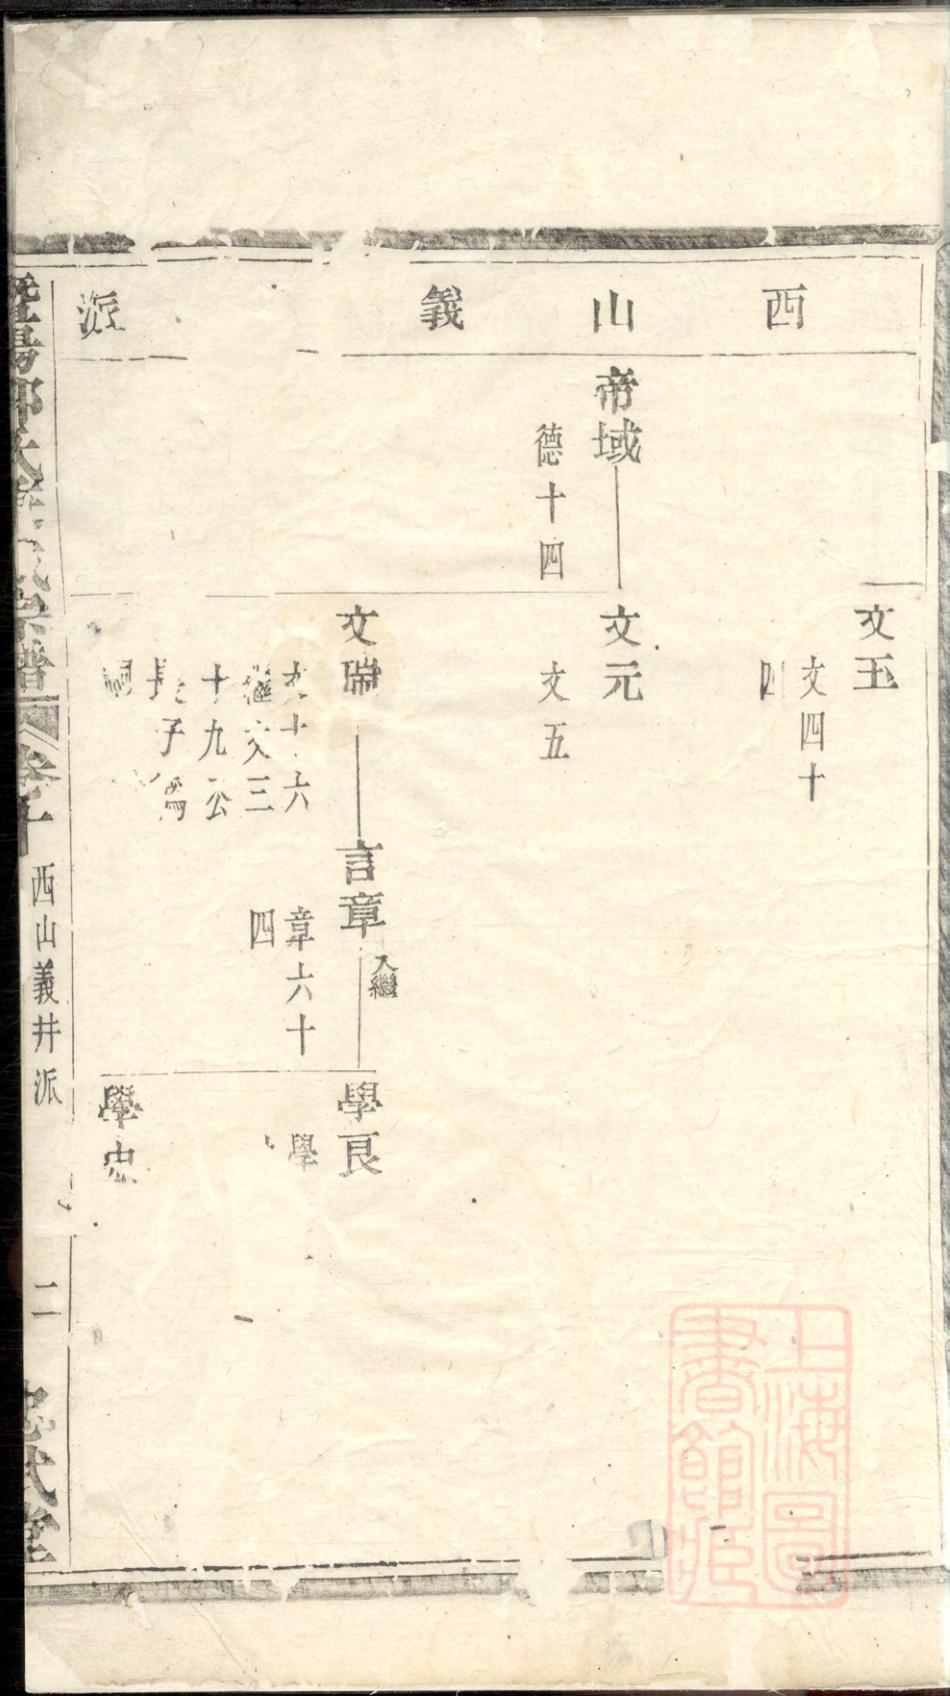 西山義 派
文玉
文四十
四
帝域
德十四
文元
文五
文瑞
文十六
繼文三
十九公
長子爲
嗣
言章
入繼
章六十
四
學良
學
學忠
暨陽
宗譜
卷十
西山義井派
二
忠武堂
上海圖
書館藏